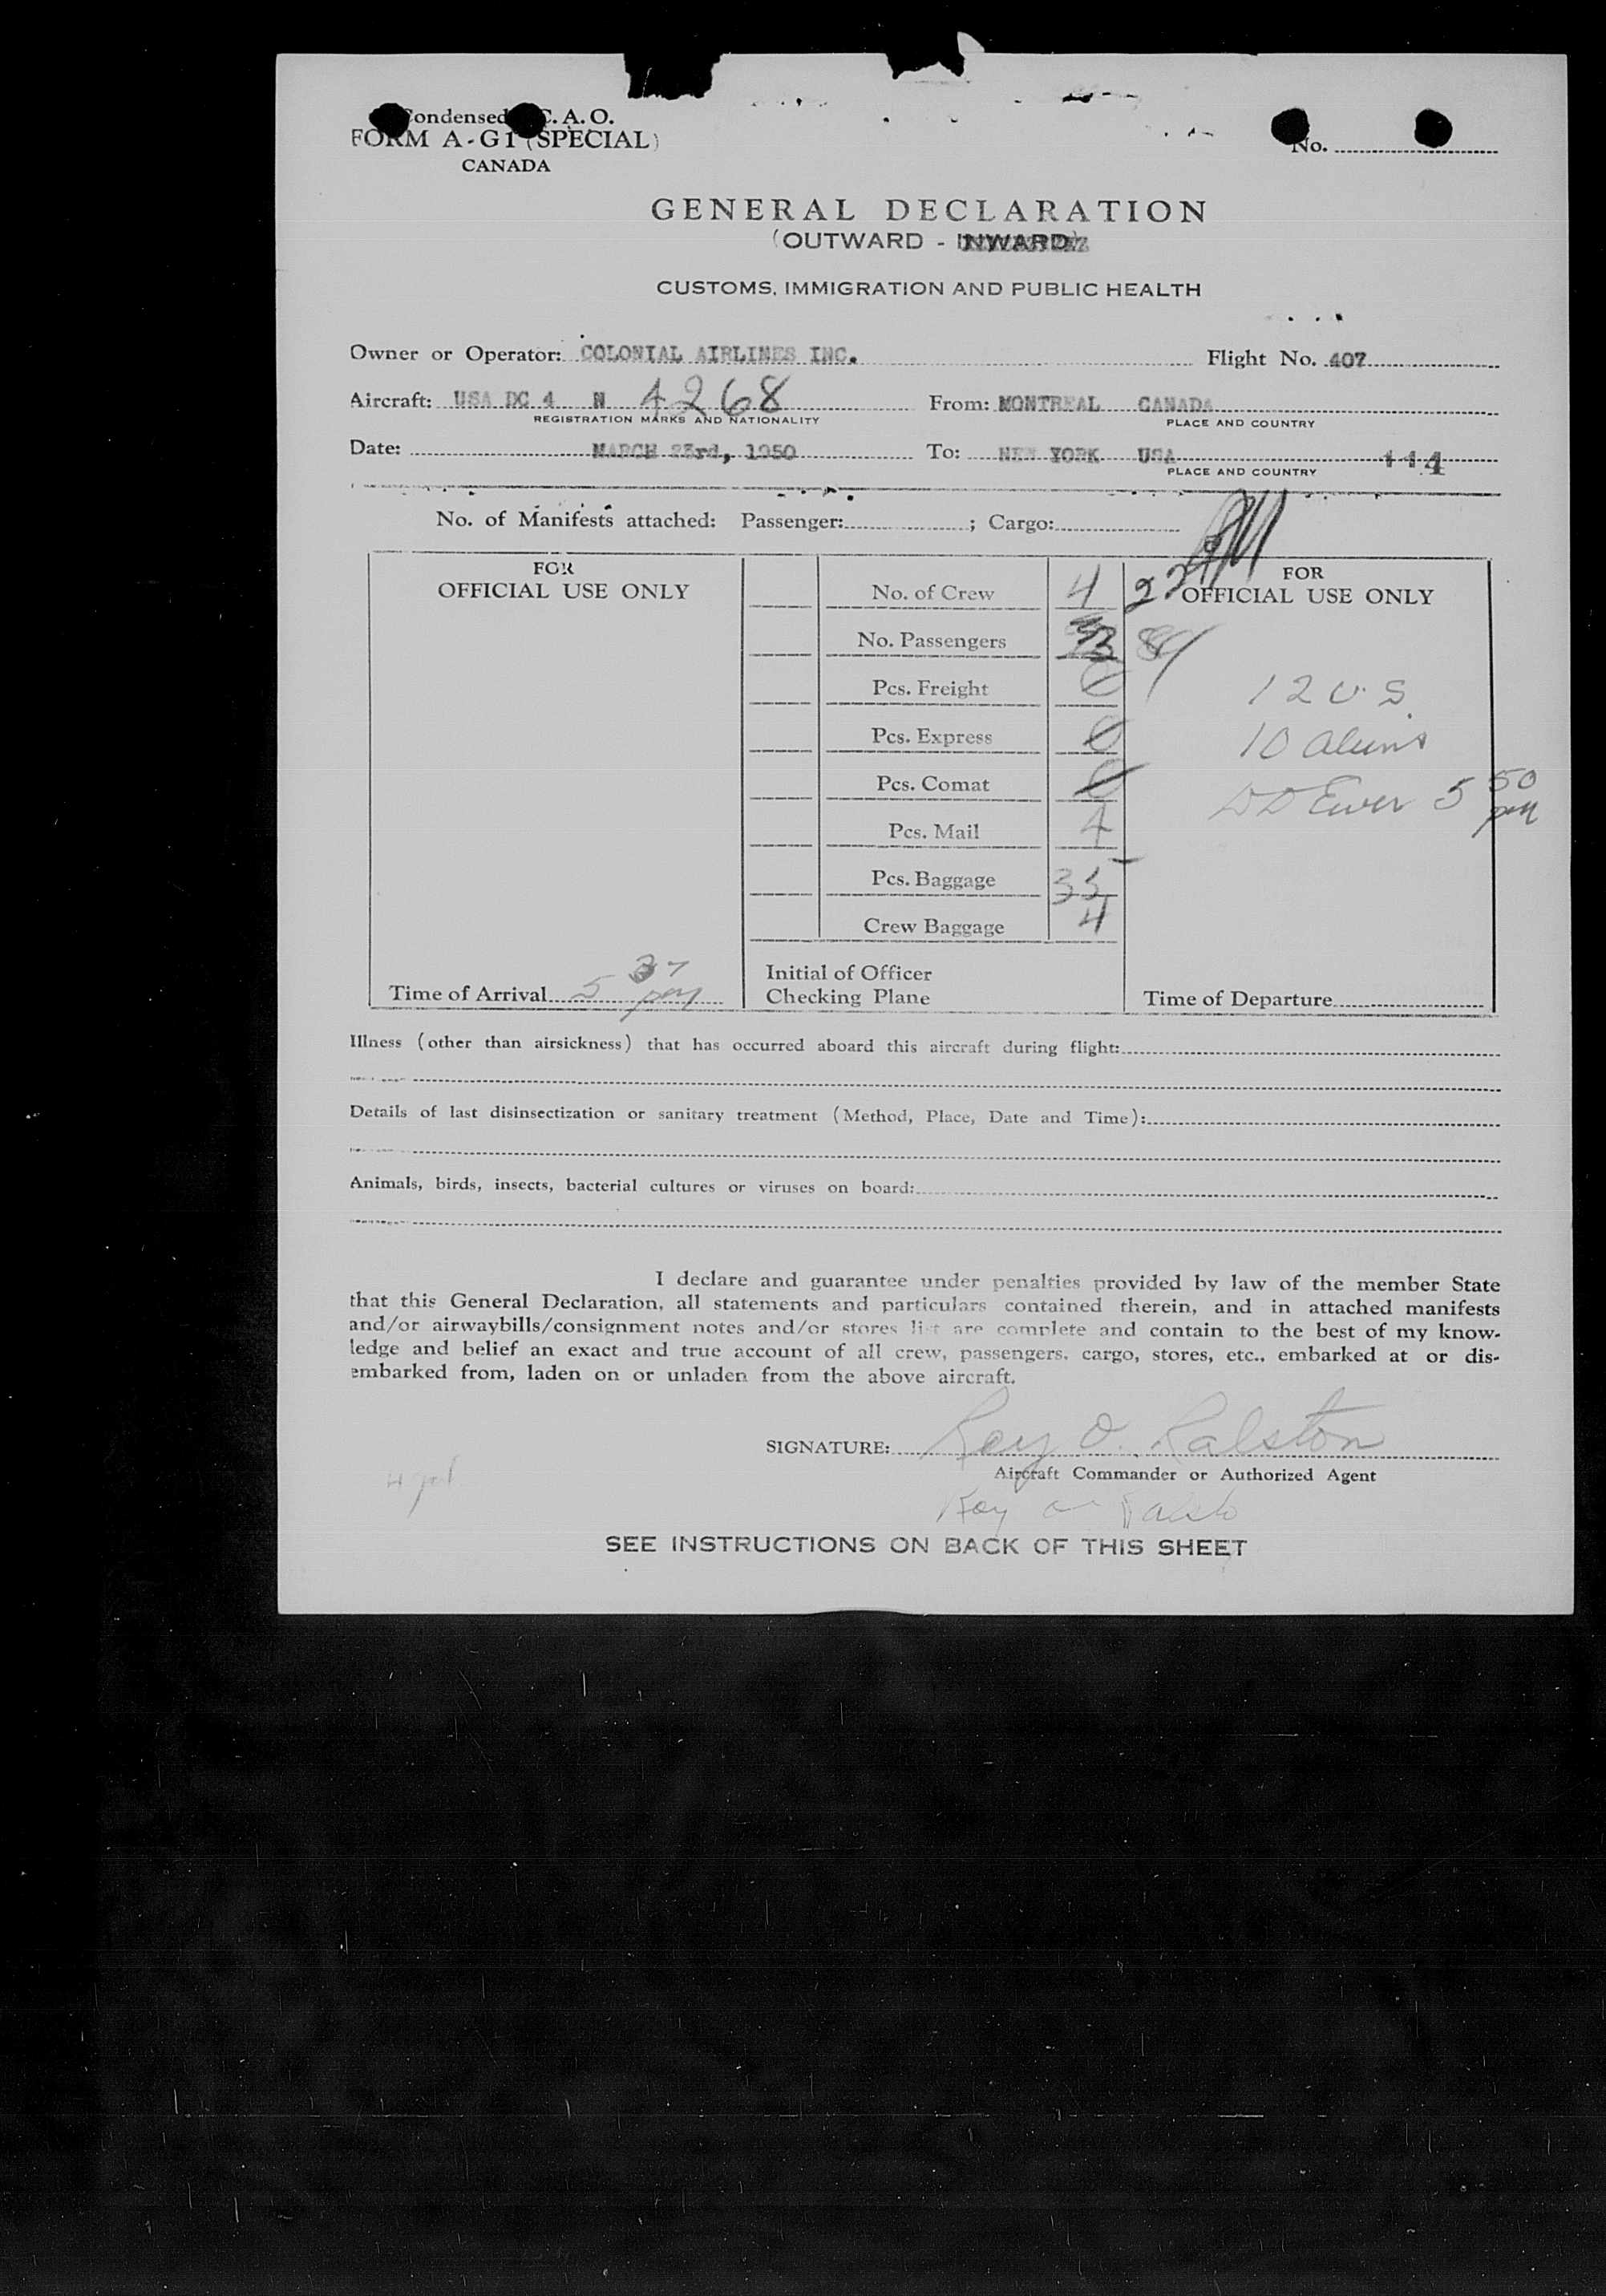 Condensed C. A. O.
FORM A-G1 (SPECIAL)
CANADA
No.
GENERAL DECLARATION
(OUTWARD - INWARD)
CUSTOMS, IMMIGRATION AND PUBLIC HEALTH
Owner or Operator: COLONIAL AIRLINES INC. Flight No. 407
Aircraft: USA DC 4 N 4268 From: MONTREAL CANADA
REGISTRATION MARKS AND NATIONALITY PLACE AND COUNTRY
Date: MARCH 23rd, 1950 To: NEW YORK USA 114
PLACE AND COUNTRY
No. of Manifests attached: Passenger: ; Cargo:
FOR
OFFICIAL USE ONLY
No. of Crew 4
No. Passengers
Pcs. Freight 0
Pcs. Express 0
Pcs. Comat 0
Pcs. Mail 4
Pcs. Baggage 35
Crew Baggage 4
Initial of Officer
Checking Plane
Time of Arrival 5 37 pm
22
FOR
OFFICIAL USE ONLY
12 U.S.
10 aliens
5 50 pm
Time of Departure
Illness (other than airsickness) that has occurred aboard this aircraft during flight:
Details of last disinsectization or sanitary treatment (Method, Place, Date and Time):
Animals, birds, insects, bacterial cultures or viruses on board:
I declare and guarantee under penalties provided by law of the member State
that this General Declaration, all statements and particulars contained therein, and in attached manifests
and/or airwaybills/consignment notes and/or stores list are complete and contain to the best of my know-
ledge and belief an exact and true account of all crew, passengers, cargo, stores, etc., embarked at or dis-
embarked from, laden on or unladen from the above aircraft.
SIGNATURE: Roy O. Ralston
Aircraft Commander or Authorized Agent
Roy
SEE INSTRUCTIONS ON BACK OF THIS SHEET